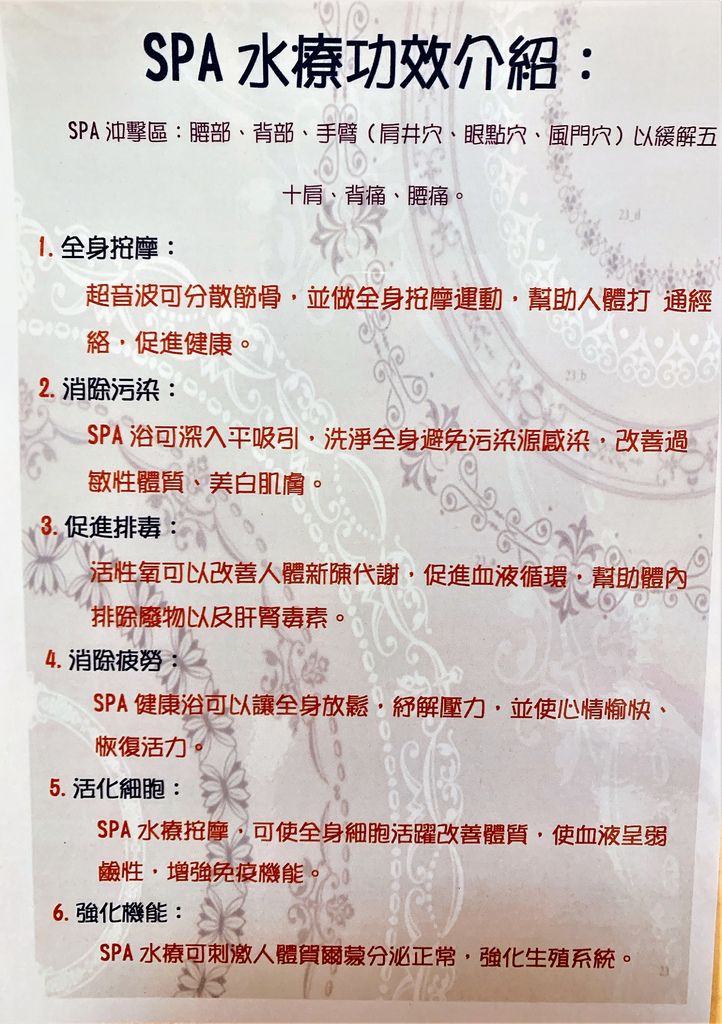 SPA 水療功效介紹：
SPA 沖擊區：腰部、背部、手臂（肩井穴、眼點穴、風門穴）以緩解五
十肩、背痛、腰痛。
1. 全身按摩：
超音波可分散筋骨，並做全身按摩運動，幫助人體打 通經
絡，促進健康。
2. 消除污染：
SPA 浴可深入平吸引，洗淨全身避免污染源感染，改善過
敏性體質、美白肌膚。
3. 促進排毒：
活性氧可以改善人體新陳代謝，促進血液循環，幫助體內
排除廢物以及肝腎毒素。
4. 消除疲勞：
SPA 健康浴可以讓全身放鬆，紓解壓力，並使心情愉快、
恢復活力。
5. 活化細胞：
SPA 水療按摩，可使全身細胞活躍改善體質，使血液呈弱
鹼性，增強免疫機能。
6. 強化機能：
SPA 水療可刺激人體賀爾蒙分泌正常，強化生殖系統。
23_d
23_b
23